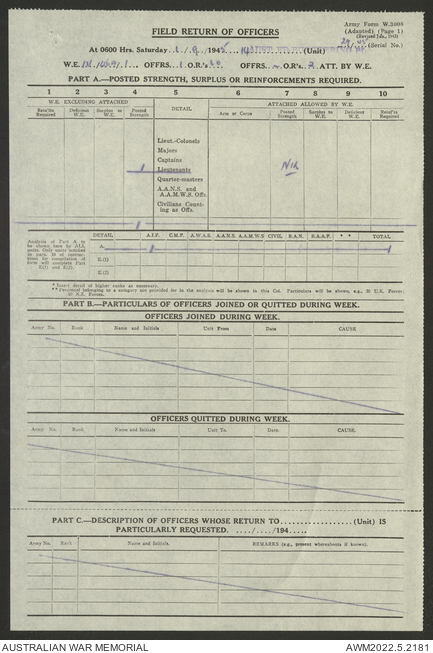 Army Form W.3008
(Adapted) (Page 1)
(Revised July, 1943)
(Serial No.)
FIELD RETURN OF OFFICERS
At 0600 Hrs. Saturday 1/9/1945 (Unit)
W.E. OFFRS. 1 O.R's OFFRS. O.R's 2 ATT. BY W.E.
PART A.—POSTED STRENGTH, SURPLUS OR REINFORCEMENTS REQUIRED.
1 2 3 4 5 6 7 8 9 10
W.E. EXCLUDING ATTACHED DETAIL ATTACHED ALLOWED BY W.E.
Reinf'ts Required Deficient W.E. Surplus to W.E. Posted Strength Arm or Corps Posted Strength Surplus to W.E. Deficient W.E. Reinf'ts Required
Lieut.-Colonels
Majors
Captains
1 Lieutenants Nil
Quarter-masters
A.A.N.S. and A.A.M.W.S. Offs.
Civilians Counting as Offs.
1
Analysis of Part A to be shown here by ALL units. Only units notified in para. 18 of instructions for compilation of form will complete Part E(1) and E(2).
DETAIL A.I.F. C.M.F. A.W.A.S. A.A.N.S. A.A.M.W.S. CIVIL R.A.N. R.A.A.F. * * TOTAL
A. 1 1
E.(1)
E.(2)
* Insert detail of higher ranks as necessary.
** Personnel belonging to a category not provided for in the analysis will be shown in this Col. Particulars will be shown, e.g., 20 U.K. Forces; 20 N.Z. Forces.
PART B.—PARTICULARS OF OFFICERS JOINED OR QUITTED DURING WEEK.
OFFICERS JOINED DURING WEEK.
Army No. Rank Name and Initials Unit From Date CAUSE
OFFICERS QUITTED DURING WEEK.
Army No. Rank Name and Initials Unit To. Date. CAUSE.
PART C.—DESCRIPTION OF OFFICERS WHOSE RETURN TO.................. (Unit) IS
PARTICULARLY REQUESTED. ..../..../194.....
Army No. Rank Name and Initials. REMARKS (e.g., present whereabouts if known).
AUSTRALIAN WAR MEMORIAL AWM2022.5.2181